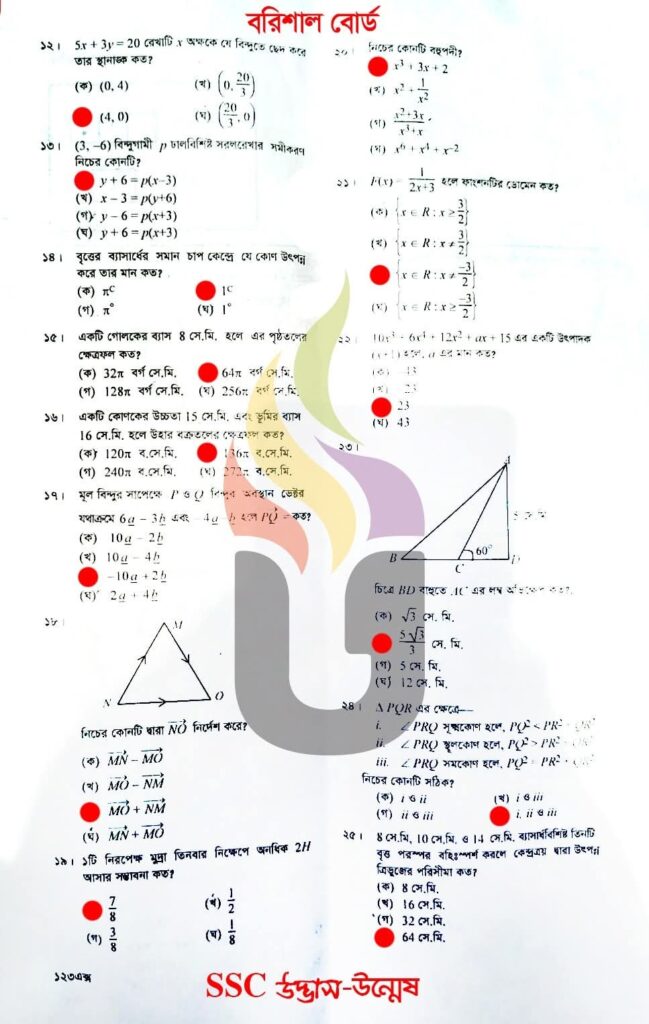 বরিশাল বোর্ড
১২। 5x + 3y = 20 রেখাটি x অক্ষকে যে বিন্দুতে ছেদ করে
তার স্থানাঙ্ক কত?
(ক) (0, 4) (খ) (0, 20/3)
(4, 0) (ঘ) (20/3, 0)
১৩। (3, –6) বিন্দুগামী p ঢালবিশিষ্ট সরলরেখার সমীকরণ
নিচের কোনটি?
y + 6 = p(x–3)
(খ) x – 3 = p(y+6)
(গ) y – 6 = p(x+3)
(ঘ) y + 6 = p(x+3)
১৪। বৃত্তের ব্যাসার্ধের সমান চাপ কেন্দ্রে যে কোণ উৎপন্ন
করে তার মান কত?
(ক) πᶜ 1ᶜ
(গ) π° (ঘ) 1°
১৫। একটি গোলকের ব্যাস 8 সে.মি. হলে এর পৃষ্ঠতলের
ক্ষেত্রফল কত?
(ক) 32π বর্গ সে.মি. 64π বর্গ সে.মি.
(গ) 128π বর্গ সে.মি. (ঘ) 256π বর্গ সে.মি.
১৬। একটি কোণকের উচ্চতা 15 সে.মি. এবং ভূমির ব্যাস
16 সে.মি. হলে উহার বক্রতলের ক্ষেত্রফল কত?
(ক) 120π ব.সে.মি. 136π ব.সে.মি.
(গ) 240π ব.সে.মি. (ঘ) 272π ব.সে.মি.
১৭। মূল বিন্দুর সাপেক্ষে P ও Q বিন্দুর অবস্থান ভেক্টর
যথাক্রমে 6a – 3b এবং –4a – b হলে PQ⃗ = কত?
(ক) 10a – 2b
(খ) 10a – 4b
–10a + 2b
(ঘ) 2a + 4b
১৮।
M
N O
নিচের কোনটি দ্বারা NO⃗ নির্দেশ করে?
(ক) MN⃗ – MO⃗
(খ) MO⃗ – NM⃗
MO⃗ + NM⃗
(ঘ) MN⃗ + MO⃗
১৯। ১টি নিরপেক্ষ মুদ্রা তিনবার নিক্ষেপে অনধিক 2H
আসার সম্ভাবনা কত?
7/8 (খ) 1/2
(গ) 3/8 (ঘ) 1/8
১২৩এক্স
২০। নিচের কোনটি বহুপদী?
x³ + 3x + 2
(খ) x² + 1/x²
(গ) x²+3x/x³+x
(ঘ) x⁶ + x⁴ + x⁻²
২১। F(x) = 1/2x+3 হলে ফাংশনটির ডোমেন কত?
(ক) {x ∈ R : x ≥ 3/2}
(খ) {x ∈ R : x ≠ 3/2}
{x ∈ R : x ≠ –3/2}
(ঘ) {x ∈ R : x ≥ –3/2}
২২। 10x³ + 6x³ + 12x² + ax + 15 এর একটি উৎপাদক
(x+1) হলে, a এর মান কত?
(ক) –43
(খ) –23
23
(ঘ) 43
২৩।
A
5 সে.মি
B C 60° D
চিত্রে BD বাহুতে AC এর লম্ব অভিক্ষেপ কত?
(ক) √3 সে. মি.
5√3/3 সে. মি.
(গ) 5 সে. মি.
(ঘ) 12 সে. মি.
২৪। Δ PQR এর ক্ষেত্রে—
i. ∠PRQ সূক্ষ্মকোণ হলে, PQ² < PR² + QR²
ii. ∠PRQ স্থূলকোণ হলে, PQ² > PR² + QR²
iii. ∠PRQ সমকোণ হলে, PQ² = PR² + QR²
নিচের কোনটি সঠিক?
(ক) i ও ii (খ) i ও iii
(গ) ii ও iii i, ii ও iii
২৫। 8 সে.মি, 10 সে.মি. ও 14 সে.মি. ব্যাসার্ধবিশিষ্ট তিনটি
বৃত্ত পরস্পর বহিঃস্পর্শ করলে কেন্দ্রত্রয় দ্বারা উৎপন্ন
ত্রিভুজের পরিসীমা কত?
(ক) 8 সে.মি.
(খ) 16 সে.মি.
(গ) 32 সে.মি.
64 সে.মি.
SSC উদ্ভাস-উন্মেষ